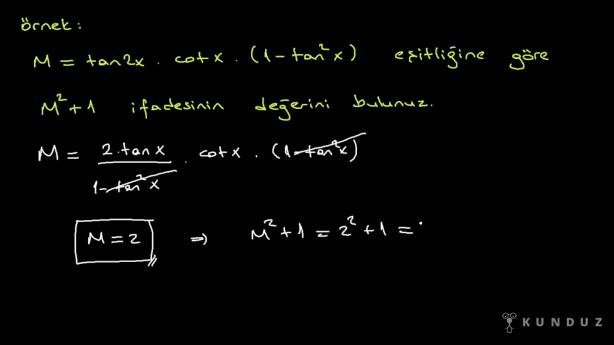 örnek:
M = tan2x . cotx . (1-tan²x) eşitliğine göre
M²+1 ifadesinin değerini bulunuz.
M = 2.tanx / 1-tan²x . cotx . (1-tan²x)
M=2 ⇒ M²+1 = 2²+1 =
KUNDUZ